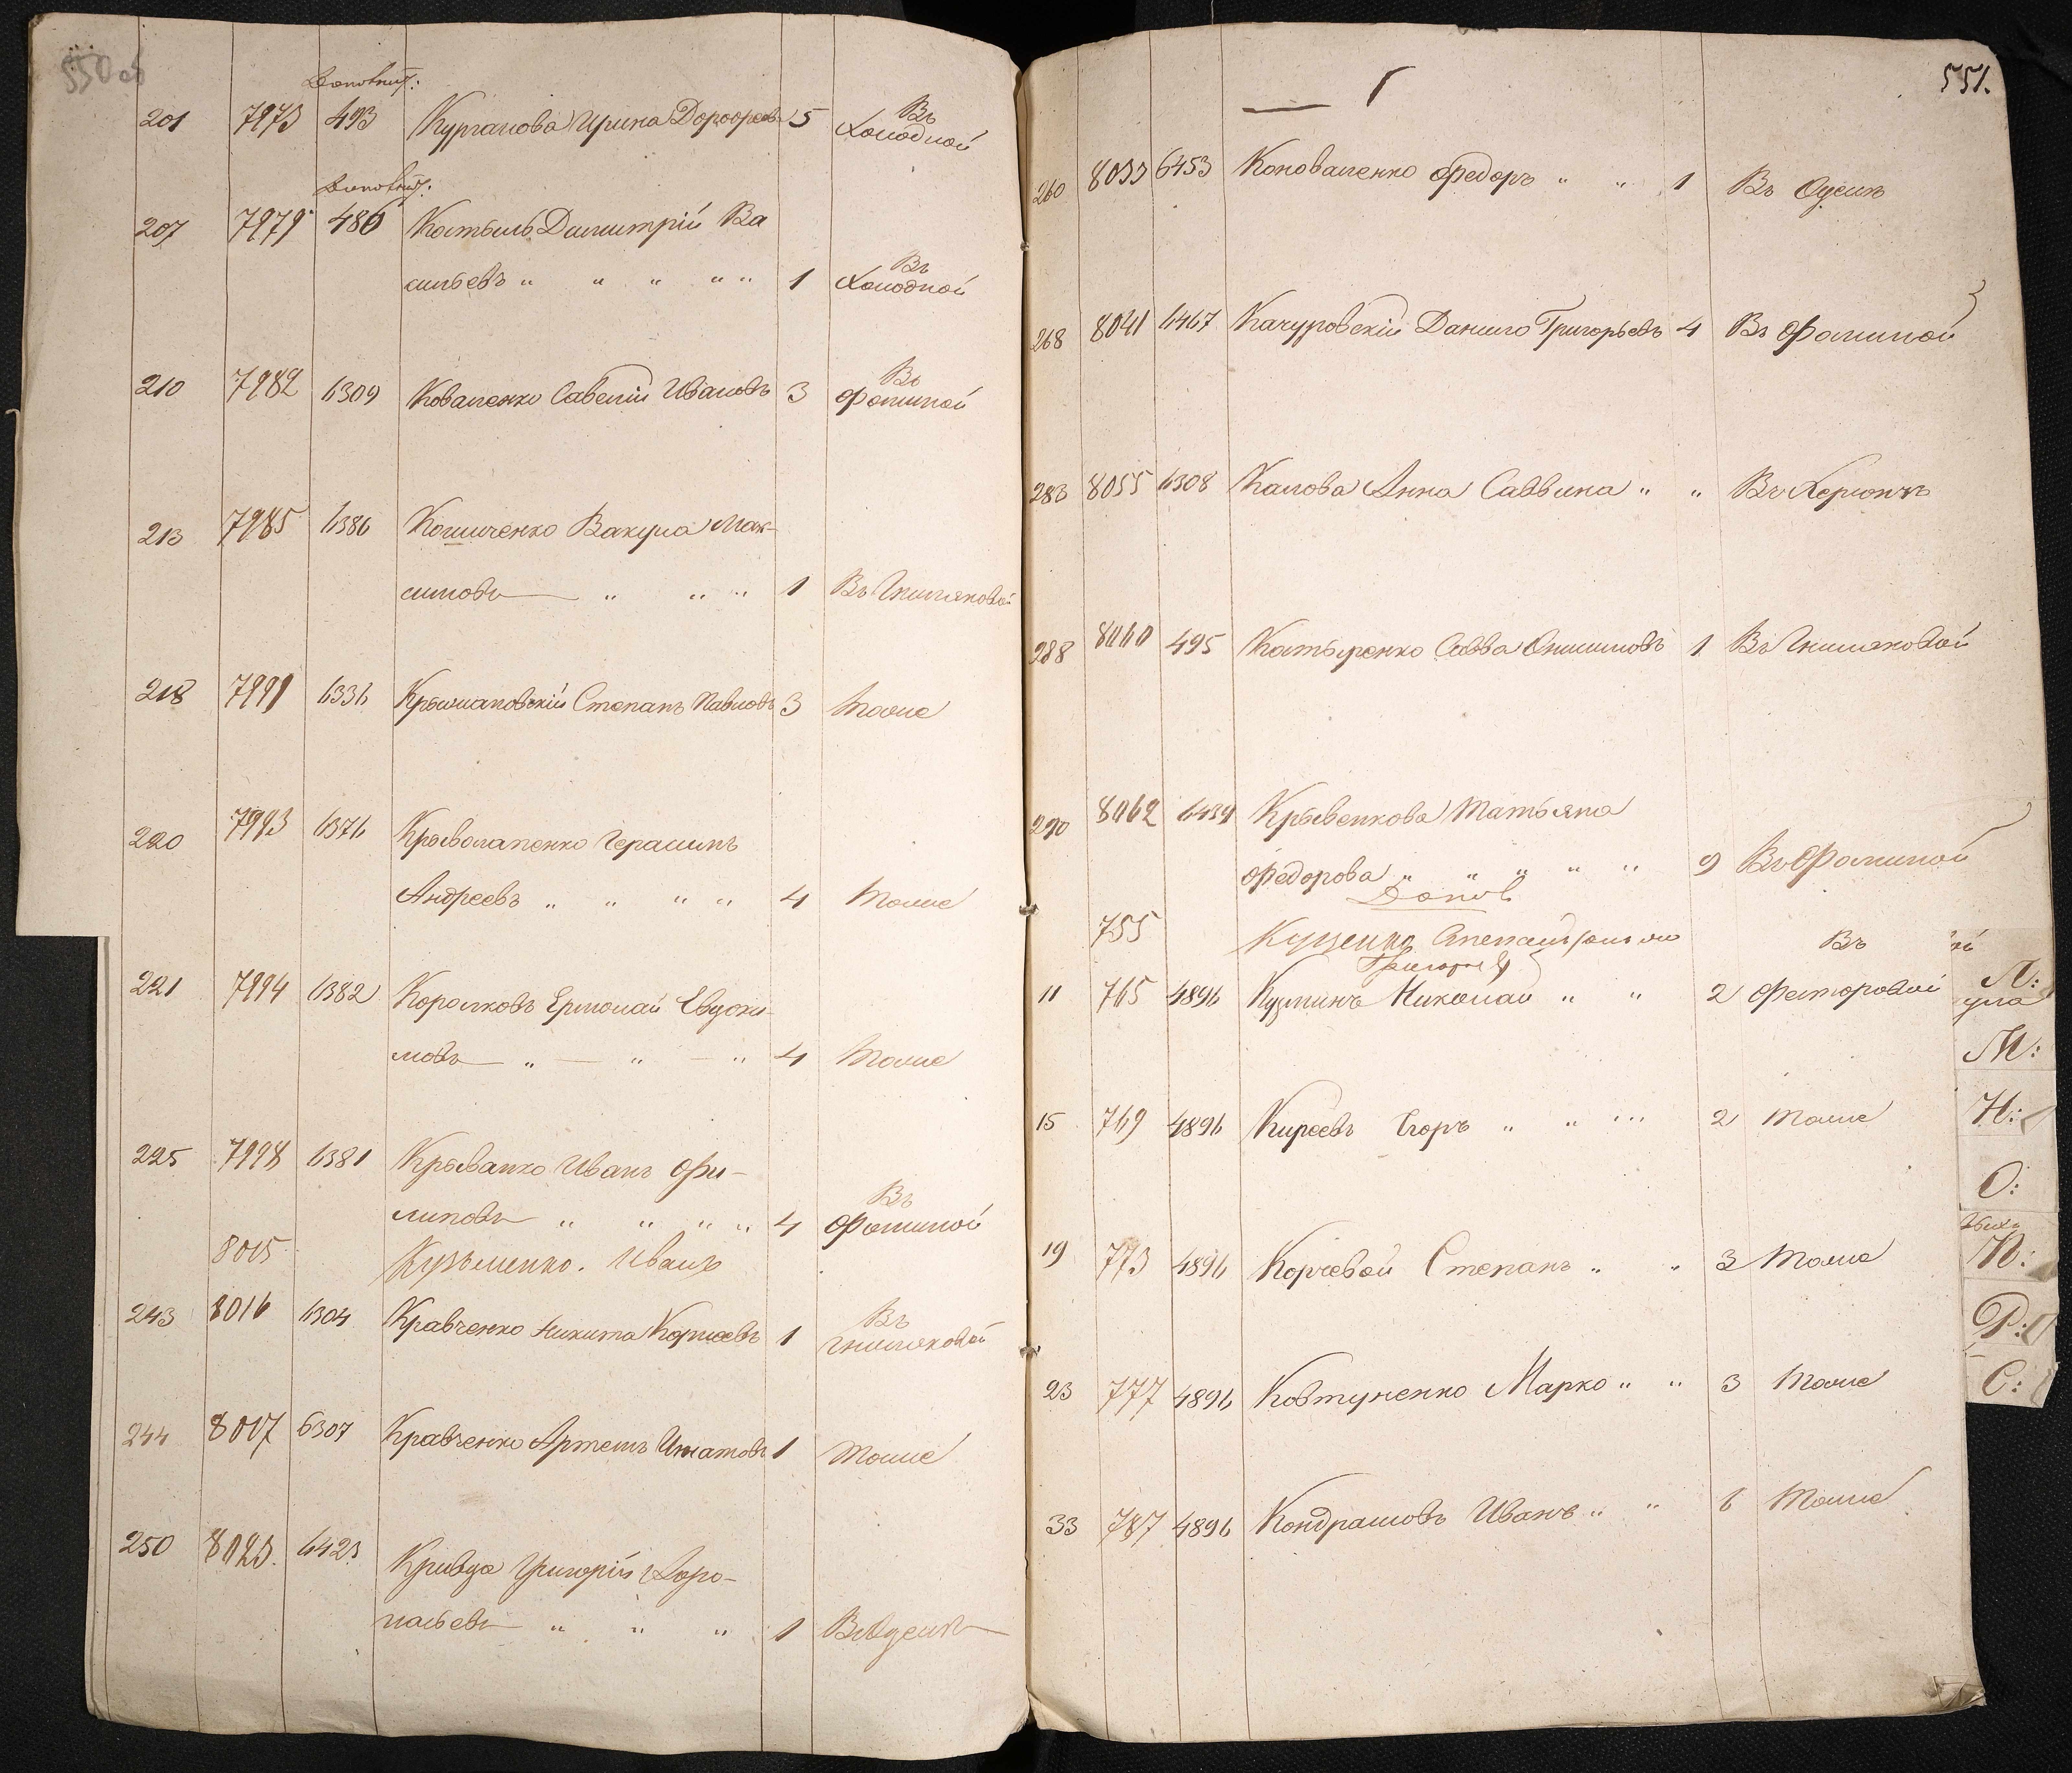 550 об
Дополнит:
201 7973 493 Курганова Ирина Дорофеева 5 Въ
Холодной
Дополнит:
207 7979 486 Костыль Димитрій Ва
сильевъ „ „ „ „ „ 1 Въ
Холодной
210 7982 6309 Коваленко Савелій Ивановъ 3 Въ
Фоминой
213 7985 6386 Кошиченко Вакула Мак-
симовъ — „ „ „ 1 Въ Гниляковой
218 7991 6336 Крыжановскій Степанъ Павловъ 3 Тоже
220 7993 6376 Крыволапенко Герасимъ
Андреевъ „ „ „ „ 4 Тоже
221 7994 6382 Корольковъ Ермолай Евдоки-
мовъ — „ — „ — „ 4 Тоже
225 7998 6381 Крыванко Иванъ Фи-
липовъ „ „ „ „ 4 Въ
Фоминой
8015 Кузьменко. Иванъ
243 8016 6304 Кравченко Никита Корнѣевъ 1 Въ
Гниляковой
244 8017 6307 Кравченко Артемъ Игнатовъ 1 Тоже
250 8023. 6423 Кривда Григорій
„ „ „ 1 Въ Одессѣ
551.
260 8033 6453 Коноваленко Федоръ „ „ 1 Въ Одессѣ
268 8041 6467 Качуровскій Данило Григорьевъ 4 Въ Фоминой
283 8055 6308 Калова Анна Саввина „ „ Въ Херсонѣ
288 8060 495 Костыренко Савва Онисимовъ 1 Въ Гниляковой
290 8062 6439 Крывенкова Татьяна
Федорова „ „ „ „ „ 9 Въ Фоминой
Допол
755 Куценко
11 765 4896 Кузминъ Николай „ „ 2 Въ
Федоровой
15 769 4896 Киреевъ Егоръ „ „ „ 2 Тоже
19 773 4896 Корчевой Степанъ „ „ 3 Тоже
23 777 4896 Ковтуненко Марко „ „ 3 Тоже
33 787 4896 Кондрашовъ Иванъ „ „ 6 Тоже
Л:
М:
Н:
О:
П:
Р:
С: